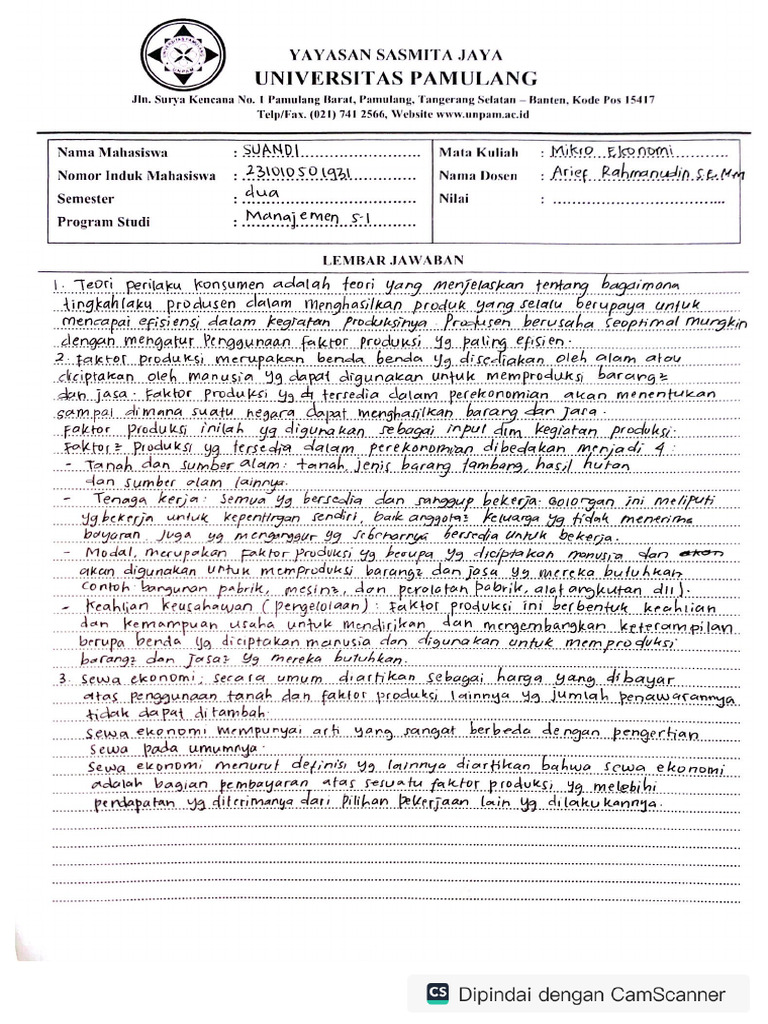 UNIVERSITAS PAMULANG
UNPAM
YAYASAN SASMITA JAYA
UNIVERSITAS PAMULANG
Jln. Surya Kencana No. 1 Pamulang Barat, Pamulang, Tangerang Selatan – Banten, Kode Pos 15417
Telp/Fax. (021) 741 2566, Website www.unpam.ac.id
Nama Mahasiswa : SUANDI
Nomor Induk Mahasiswa : 231010501931
Semester : dua
Program Studi : Manajemen S-1
Mata Kuliah : Mikro Ekonomi
Nama Dosen : Arief Rahmanudin S.E, MM
Nilai :
LEMBAR JAWABAN
1. Teori perilaku konsumen adalah teori yang menjelaskan tentang bagaimana
tingkahlaku produsen dalam menghasilkan produk yang selalu berupaya untuk
mencapai efisiensi dalam kegiatan produksinya. Produsen berusaha seoptimal mungkin
dengan mengatur Penggunaan faktor produksi yg paling efisien.
2. Faktor produksi merupakan benda benda yg disediakan oleh alam atau
diciptakan oleh manusia yg dapat digunakan untuk memproduksi barang2
dan jasa. Faktor Produksi yg di tersedia dalam perekonomian akan menentukan
sampai dimana suatu negara dapat menghasilkan barang dan jasa.
Faktor produksi inilah yg digunakan sebagai input dlm kegiatan produksi.
Faktor2 Produksi yg tersedia dalam perekonomian dibedakan menjadi 4 :
- Tanah dan sumber alam : tanah, jenis barang tambang, hasil hutan
dan sumber alam lainnya.
- Tenaga kerja : semua yg bersedia dan sanggup bekerja. Golongan ini meliputi
yg bekerja untuk kepentingan sendiri, baik anggota2 keluarga yg tidak menerima
bayaran juga yg menganggur yg sebenarnya bersedia untuk bekerja.
- Modal, merupakan faktor produksi yg berupa yg diciptakan manusia dan akan
akan digunakan untuk memproduksi barang2 dan jasa yg mereka butuhkan
Contoh bangunan pabrik, mesin2, dan peralatan pabrik, alat angkutan dll).
- Keahlian keusahawan (pengelolaan) : Faktor produksi ini berbentuk keahlian
dan kemampuan usaha untuk mendirikan dan mengembangkan keterampilan
berupa benda yg diciptakan manusia dan digunakan untuk memproduksi
barang2 dan Jasa2 yg mereka butuhkan.
3. Sewa ekonomi, secara umum diartikan sebagai harga yang dibayar
atas penggunaan tanah dan faktor produksi lainnya yg jumlah penawarannya
tidak dapat ditambah.
Sewa ekonomi mempunyai arti yang sangat berbeda dengan pengertian
Sewa pada umumnya.
Sewa ekonomi menurut definisi yg lainnya diartikan bahwa sewa ekonomi
adalah bagian pembayaran atas sesuatu faktor produksi yg melebihi
pendapatan yg diterimanya dari pilihan pekerjaan lain yg dilakukannya.
CS Dipindai dengan CamScanner